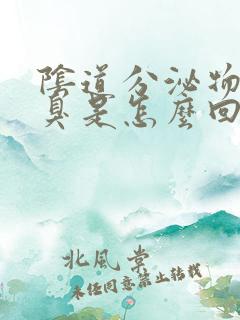 陰道分泌物
臭是怎麼回
北風裳
未經同意禁止轉載